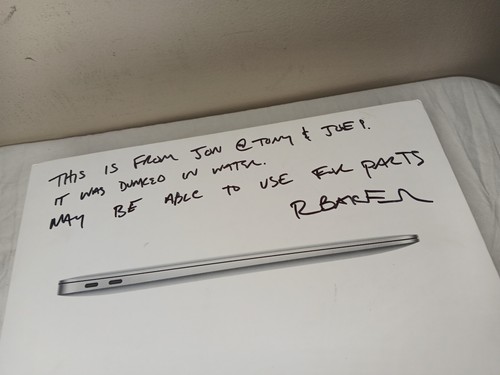 THIS IS FROM JON @ TONY & JOE!.
IT WAS DUNKED IN WATER.
MAY BE ABLE TO USE FOR PARTS
RBAKER